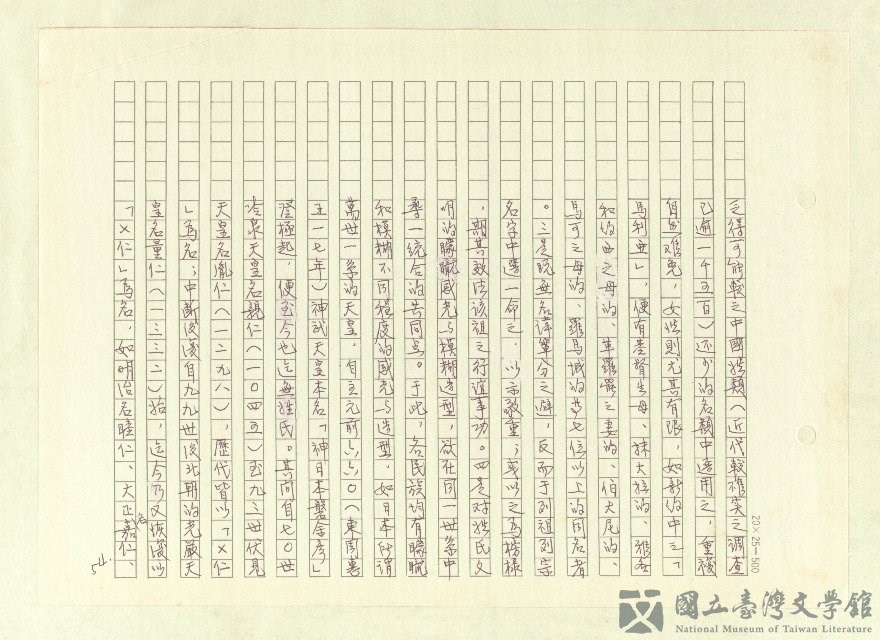 之得可能較之中國姓類(近代較確實之調查
已逾一千五百)还少的名類中选用之,重複
自然难免,女性則尤其有限,如新约中之「
馬利亜」,便有基督生母、抹大拉的、雅各
和约西之母的、革羅罷之妻的、伯大尼的、
馬可之母的、羅馬城的等七位以上的同名者
。三是既無名諱輩分之避,反而于列祖列宗
名字中选一命之,以示敬重;或以之為楷模
,期其效法该祖之行谊事功。四是对姓氏文
明的朦朧感光与模糊造型,欲在同一世系中
尋一統合的共同点。于此,各民族均有朦朧
和模糊不同程度的感光与造型,如日本所谓
萬世一系的天皇,自主元前六六〇(東周惠
王一七年)神武天皇本名「神日本磐余彦」
登極起,便至今也迄無姓氏。其间自七〇世
冷泉天皇名親仁(一〇四五)至九二世伏見
天皇名胤仁(一二九八),歷代皆以「×仁
」為名;中断後復自九九世後北朝的光嚴天
皇名量仁(一三三二)始,迄今乃又恢復以
「×仁」為名,如明治名睦仁、大正名嘉仁、
54.
20×25=500
國立臺灣文學館
National Museum of Taiwan Literature